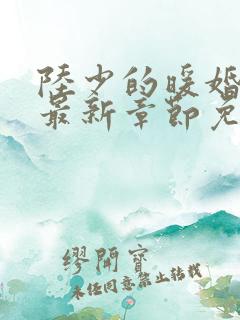 陸少的暖婚
最新章節免
繆開寶
未任同意禁止转載